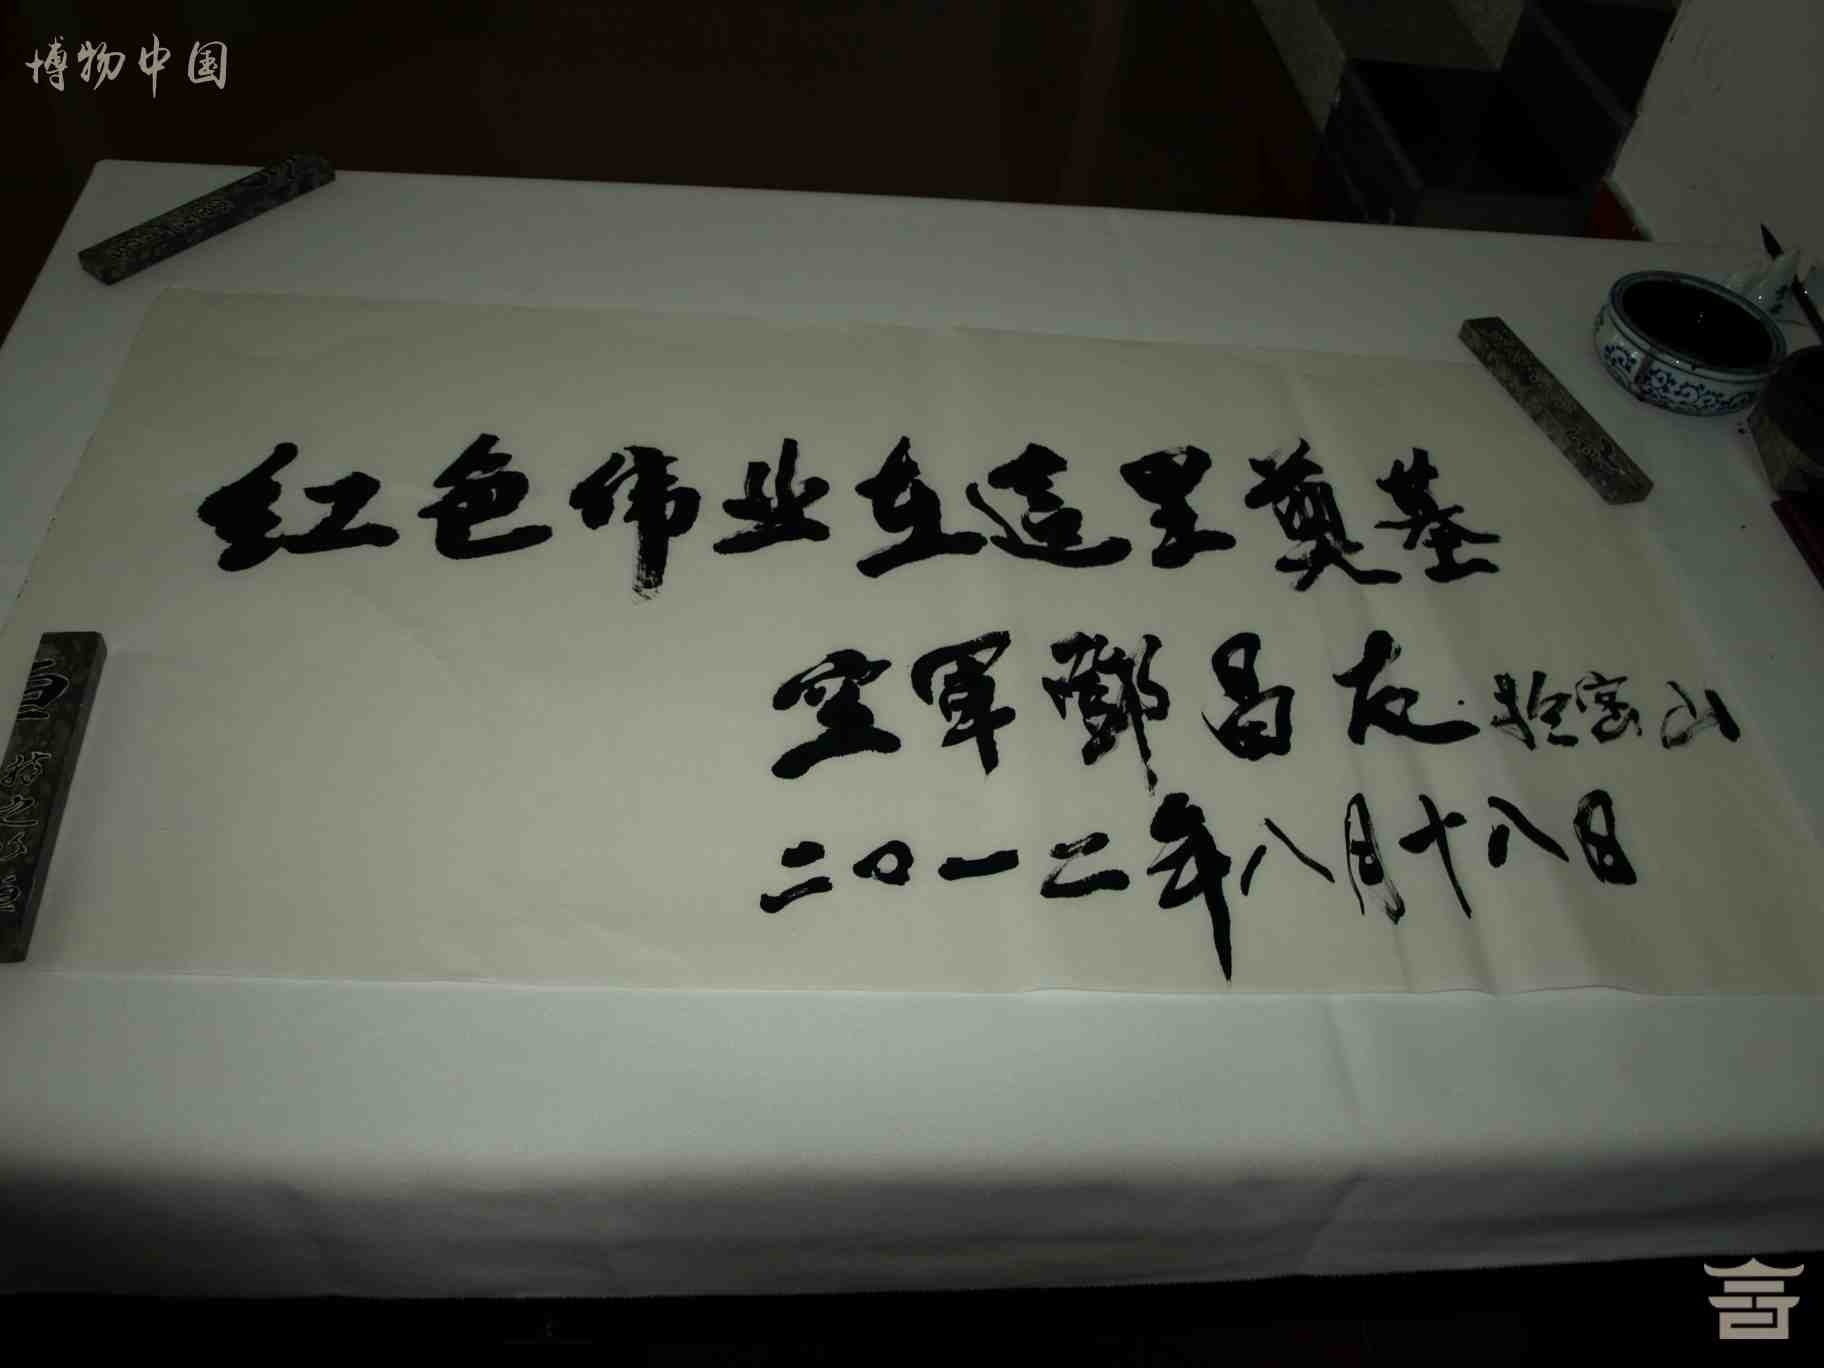 博物中国
红色伟业在这里奠基
空军鄧昌友 於宝山
二〇一二年八月十八日